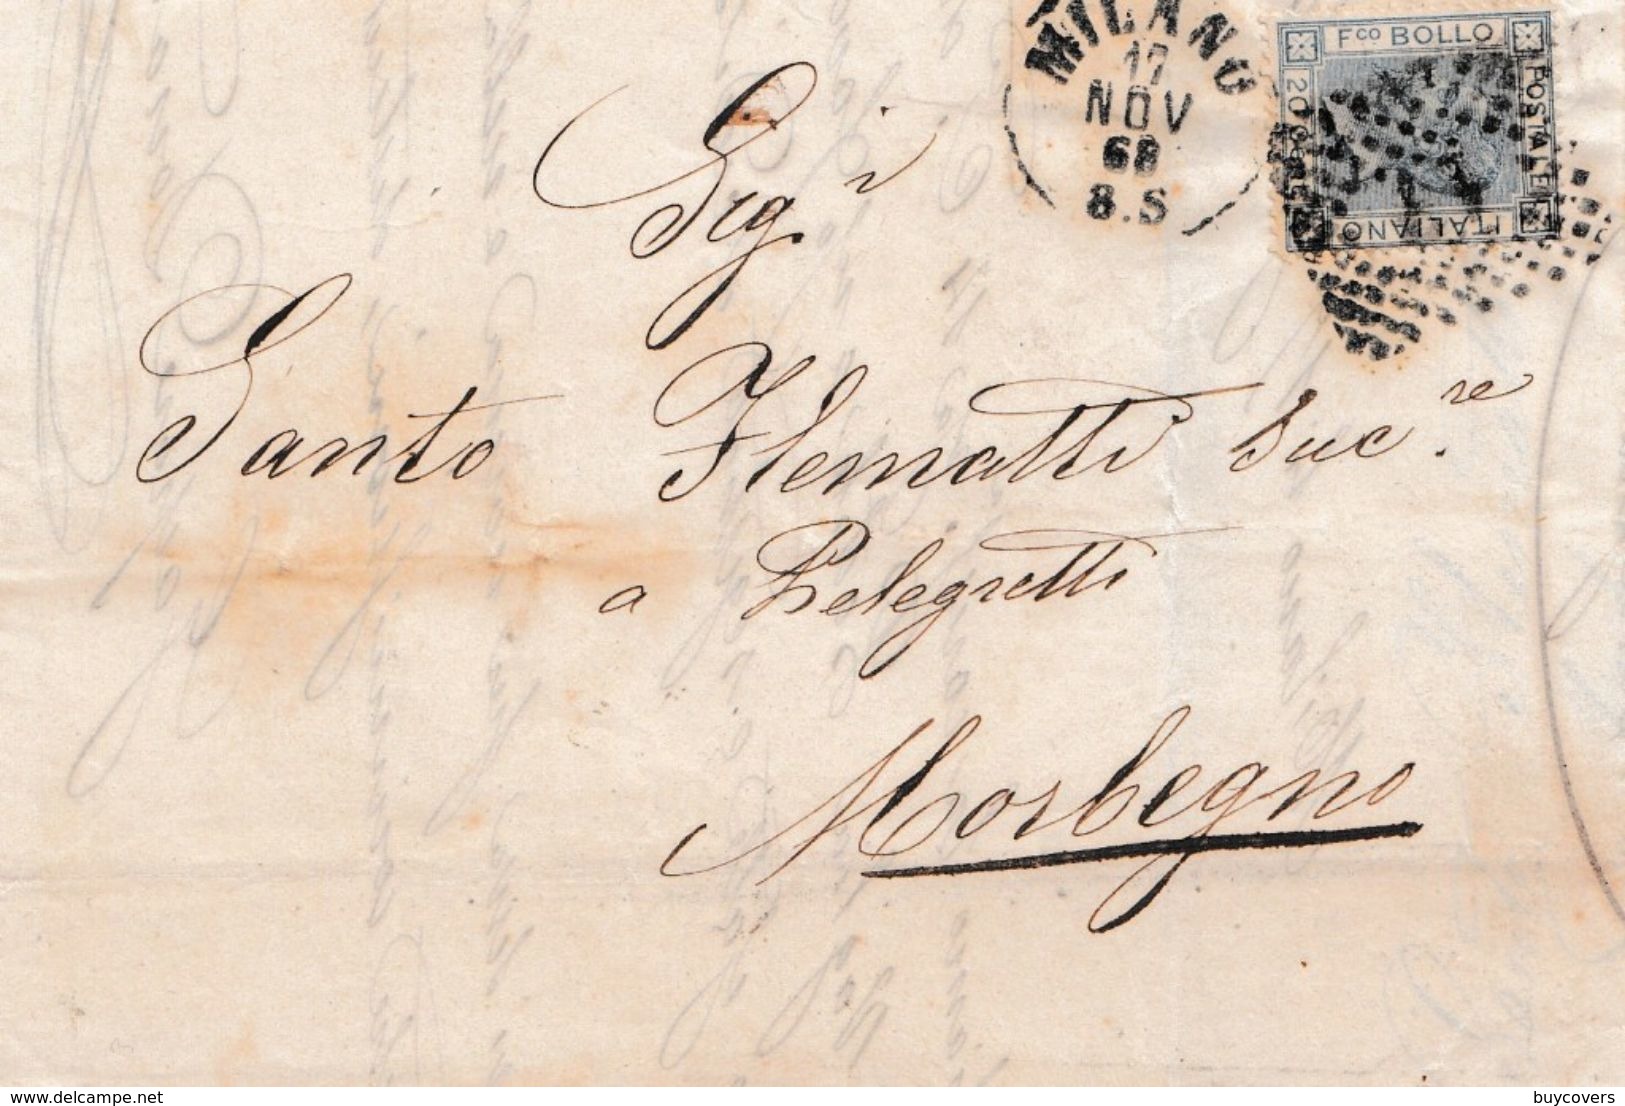 MILANO
17
NOV
68
8.S
Fco BOLLO
POSTALE
ITALIANO
20
Sig.i
Santo Flematti Succ.re
a Pelegretti
Morbegno
www.delcampe.net
buycovers